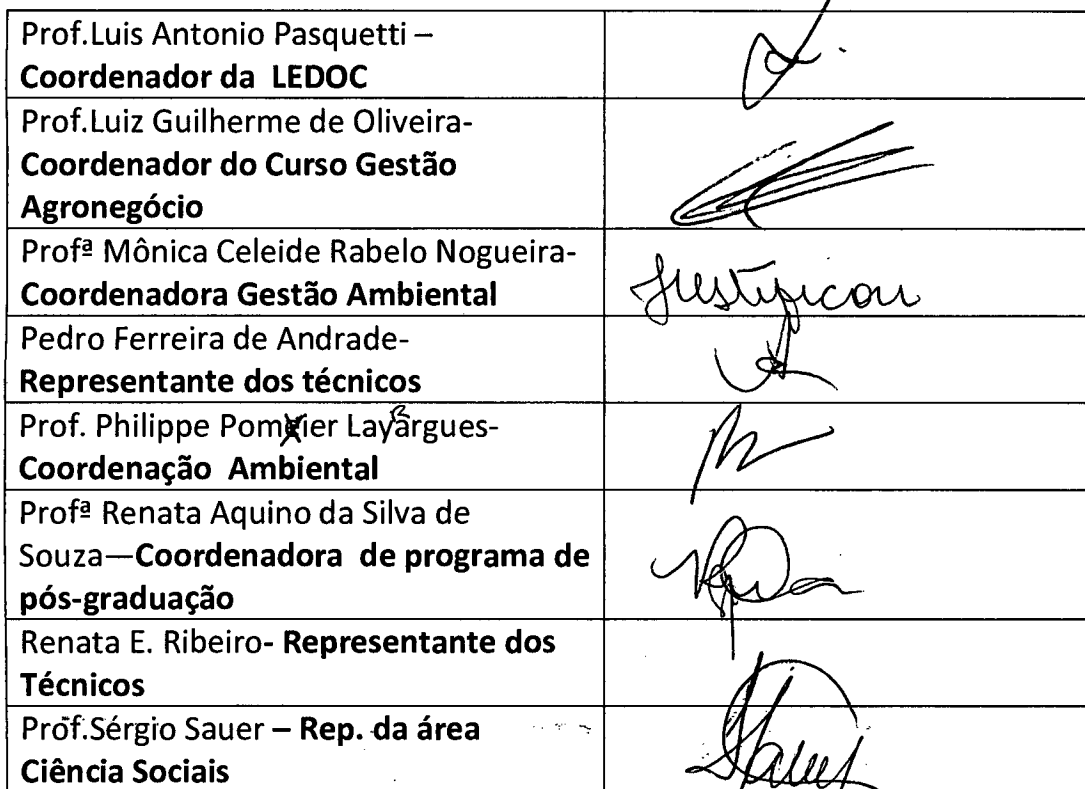 Prof.Luis Antonio Pasquetti –
Coordenador da LEDOC
Prof.Luiz Guilherme de Oliveira-
Coordenador do Curso Gestão
Agronegócio
Profª Mônica Celeide Rabelo Nogueira-
Coordenadora Gestão Ambiental
Justificou
Pedro Ferreira de Andrade-
Representante dos técnicos
Prof. Philippe Pomier Layrargues-
Coordenação Ambiental
Profª Renata Aquino da Silva de
Souza—Coordenadora de programa de
pós-graduação
Renata E. Ribeiro- Representante dos
Técnicos
Prof.Sérgio Sauer – Rep. da área
Ciência Sociais
Sauer